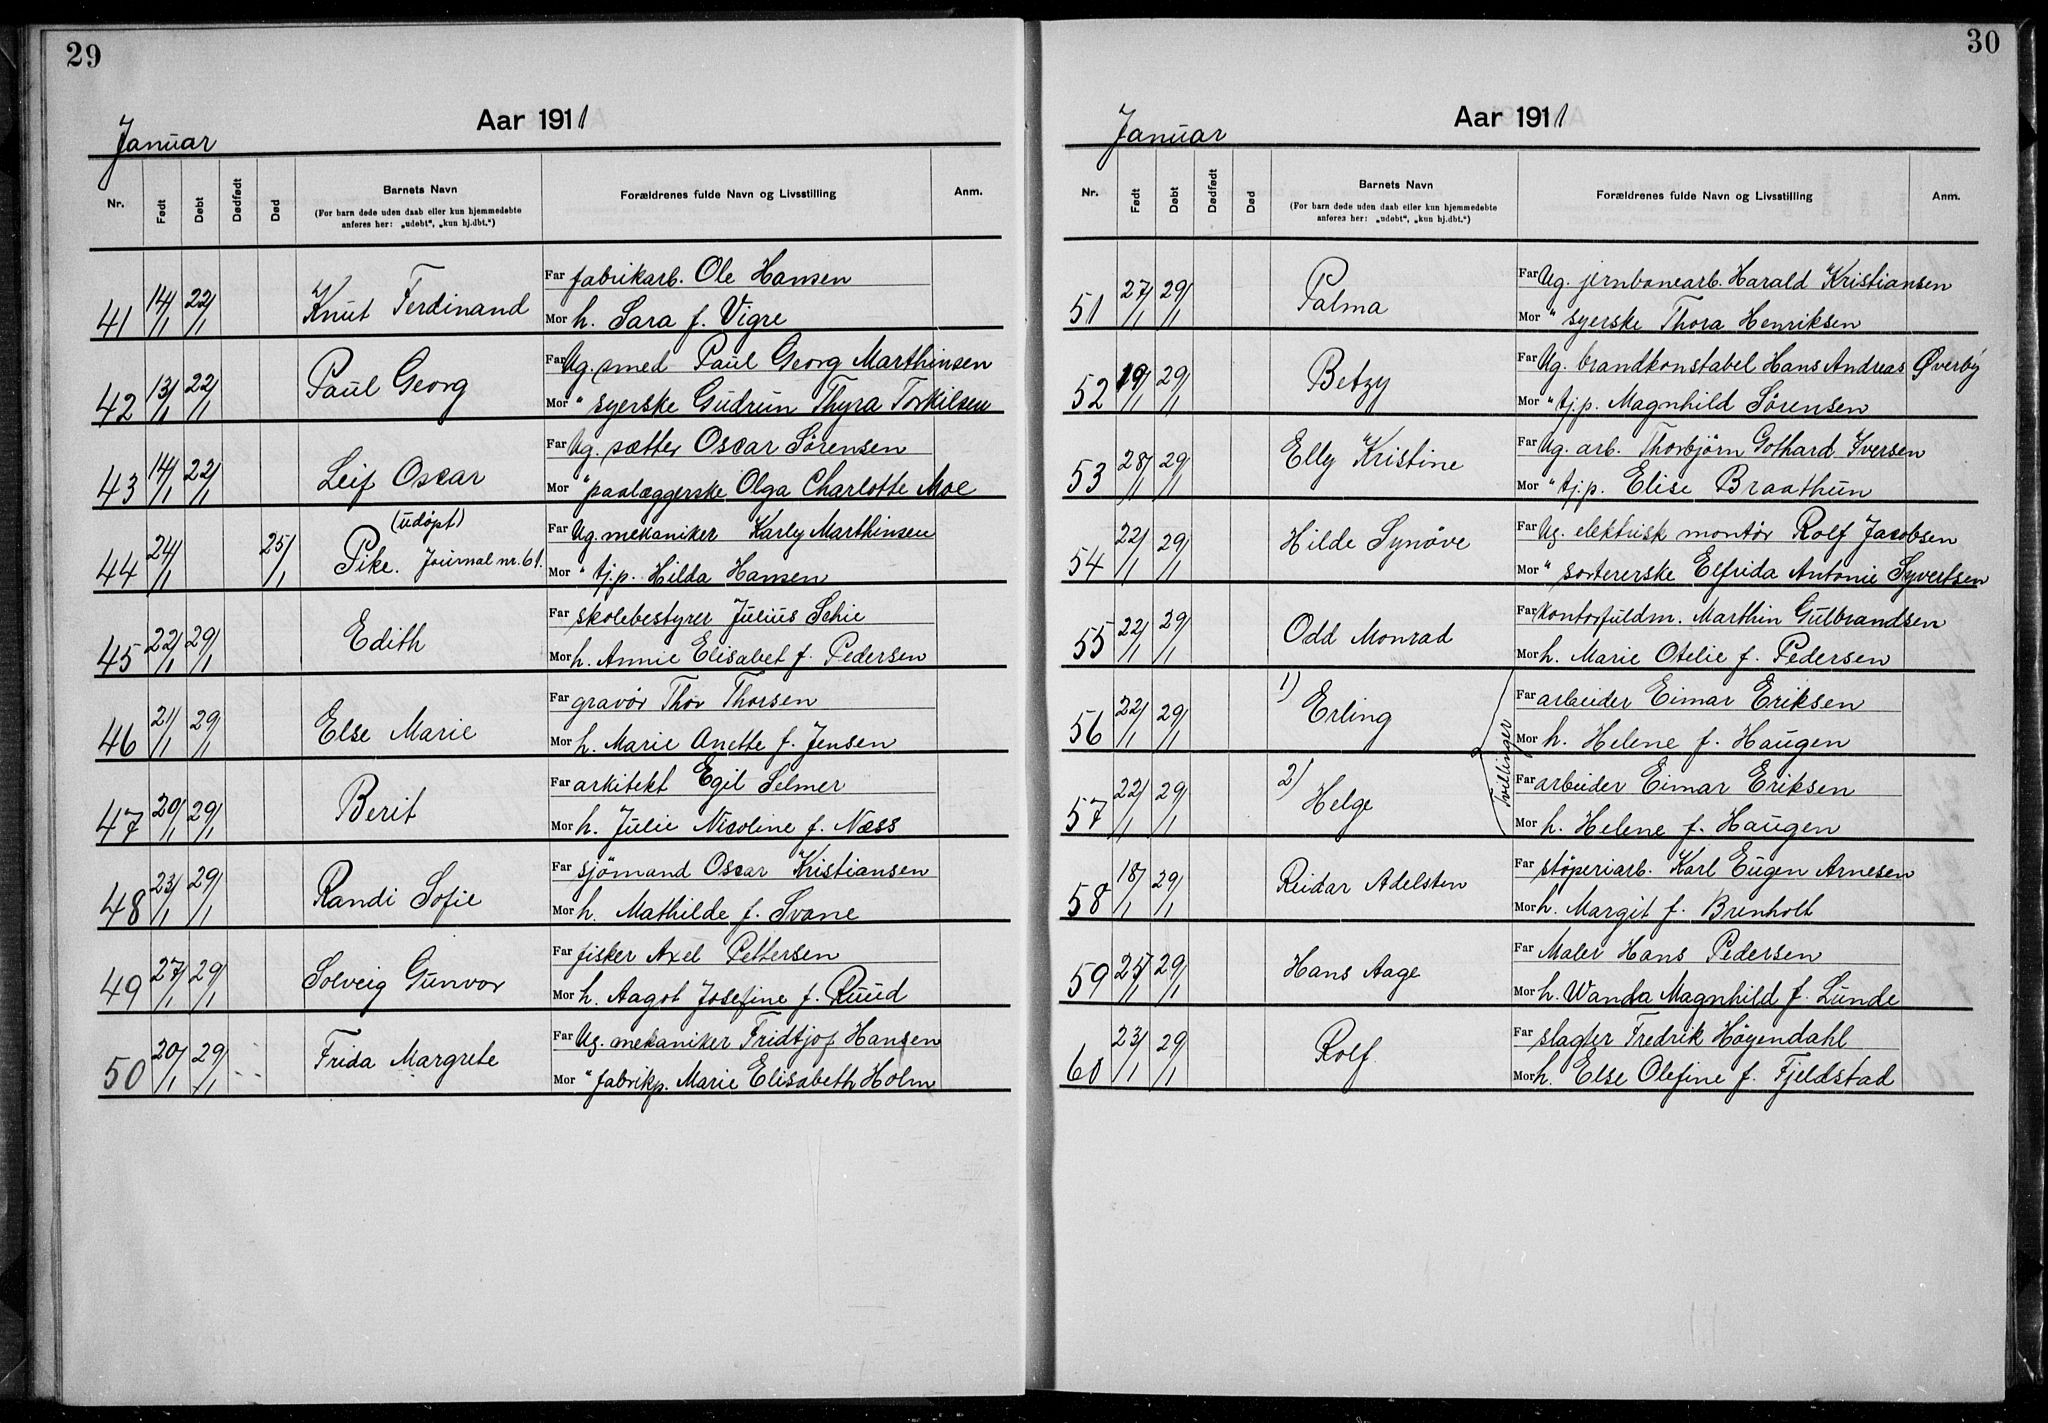 29
Aar 1911
Januar
Nr. Født Døbt Dødfødt Død Barnets Navn Forældrenes fulde Navn og Livsstilling Anm.
(For barn døde uden daab eller kun hjemmedøbte
anføres her: „udøbt“, „kun hj.dbt.“)
Far fabrikarb. Ole Hansen
41 14/1 22/1 Knut Ferdinand
Mor h. Sara f. Vigre
Far Ug. smed Paul Georg Marthinsen
42 13/1 22/1 Paul Georg
Mor " syerske Gudrun Thyra Torkilsen
Far Ug. sætter Oscar Sørensen
43 14/1 22/1 Leif Oscar
Mor " paalæggerske Olga Charlotte Moe
(udøpt)
Far Ug. mekaniker Karly Marthinsen
44 24/1 25/1 Pike. Journal nr. 61.
Mor " tj.p. Hilda Hansen
Far skolebestyrer Julius Schie
45 22/1 29/1 Edith
Mor h. Annie Elisabet f. Pedersen
Far gravør Thor Thorsen
46 21/1 29/1 Else Marie
Mor h. Marie Anette f. Jensen
Far arkitekt Egil Selmer
47 20/1 29/1 Berit
Mor h. Julie Nicoline f. Næss
Far sjömand Oscar Kristiansen
48 23/1 29/1 Randi Sofie
Mor h. Mathilde f. Svane
Far fisker Axel Pettersen
49 27/1 29/1 Solveig Gunvor
Mor h. Aagot Josefine f. Ruud
Far Ug. mekaniker Fridtjof Hansen
50 20/1 29/1 Frida Margrete
Mor " fabrikp. Marie Elisabeth Holm
30
Aar 1911
Januar
Nr. Født Døbt Dødfødt Død Barnets Navn Forældrenes fulde Navn og Livsstilling Anm.
(For barn døde uden daab eller kun hjemmedøbte
anføres her: „udøbt“, „kun hj.dbt.“)
Far Ug. jernbanearb. Harald Kristiansen
51 27/1 29/1 Palma
Mor " syerske Thora Henriksen
Far Ug. brandkonstabel Hans Andreas Øverby
52 19/1 29/1 Betzy
Mor " tj.p. Magnhild Sørensen
Far Ug. arb. Thorbjørn Gothard Iversen
53 28/1 29/1 Elly Kristine
Mor " tj.p. Elise Braathun
Far Ug. elektrisk montør Rolf Jacobsen
54 22/1 29/1 Hilde Synøve
Mor " sortererske Elfrida Antonie Syvertsen
Far kontorfuldm. Marthin Gulbrandsen
55 22/1 29/1 Odd Monrad
Mor h. Marie Otelie f. Pedersen
Far arbeider Eimar Eriksen
56 22/1 29/1 1) Erling
Mor h. Helene f. Haugen
Tvillinger
Far arbeider Eimar Eriksen
57 22/1 29/1 2) Helge
Mor h. Helene f. Haugen
Far støperiarb. Karl Eugen Arnesen
58 18/1 29/1 Reidar Adelsten
Mor h. Margit f. Brenholt
Far Maler Hans Pedersen
59 25/1 29/1 Hans Aage
Mor h. Wanda Magnhild f. Lunde
Far slagter Fredrik Høyendahl
60 23/1 29/1 Rolf
Mor h. Else Olefine f. Fjeldstad